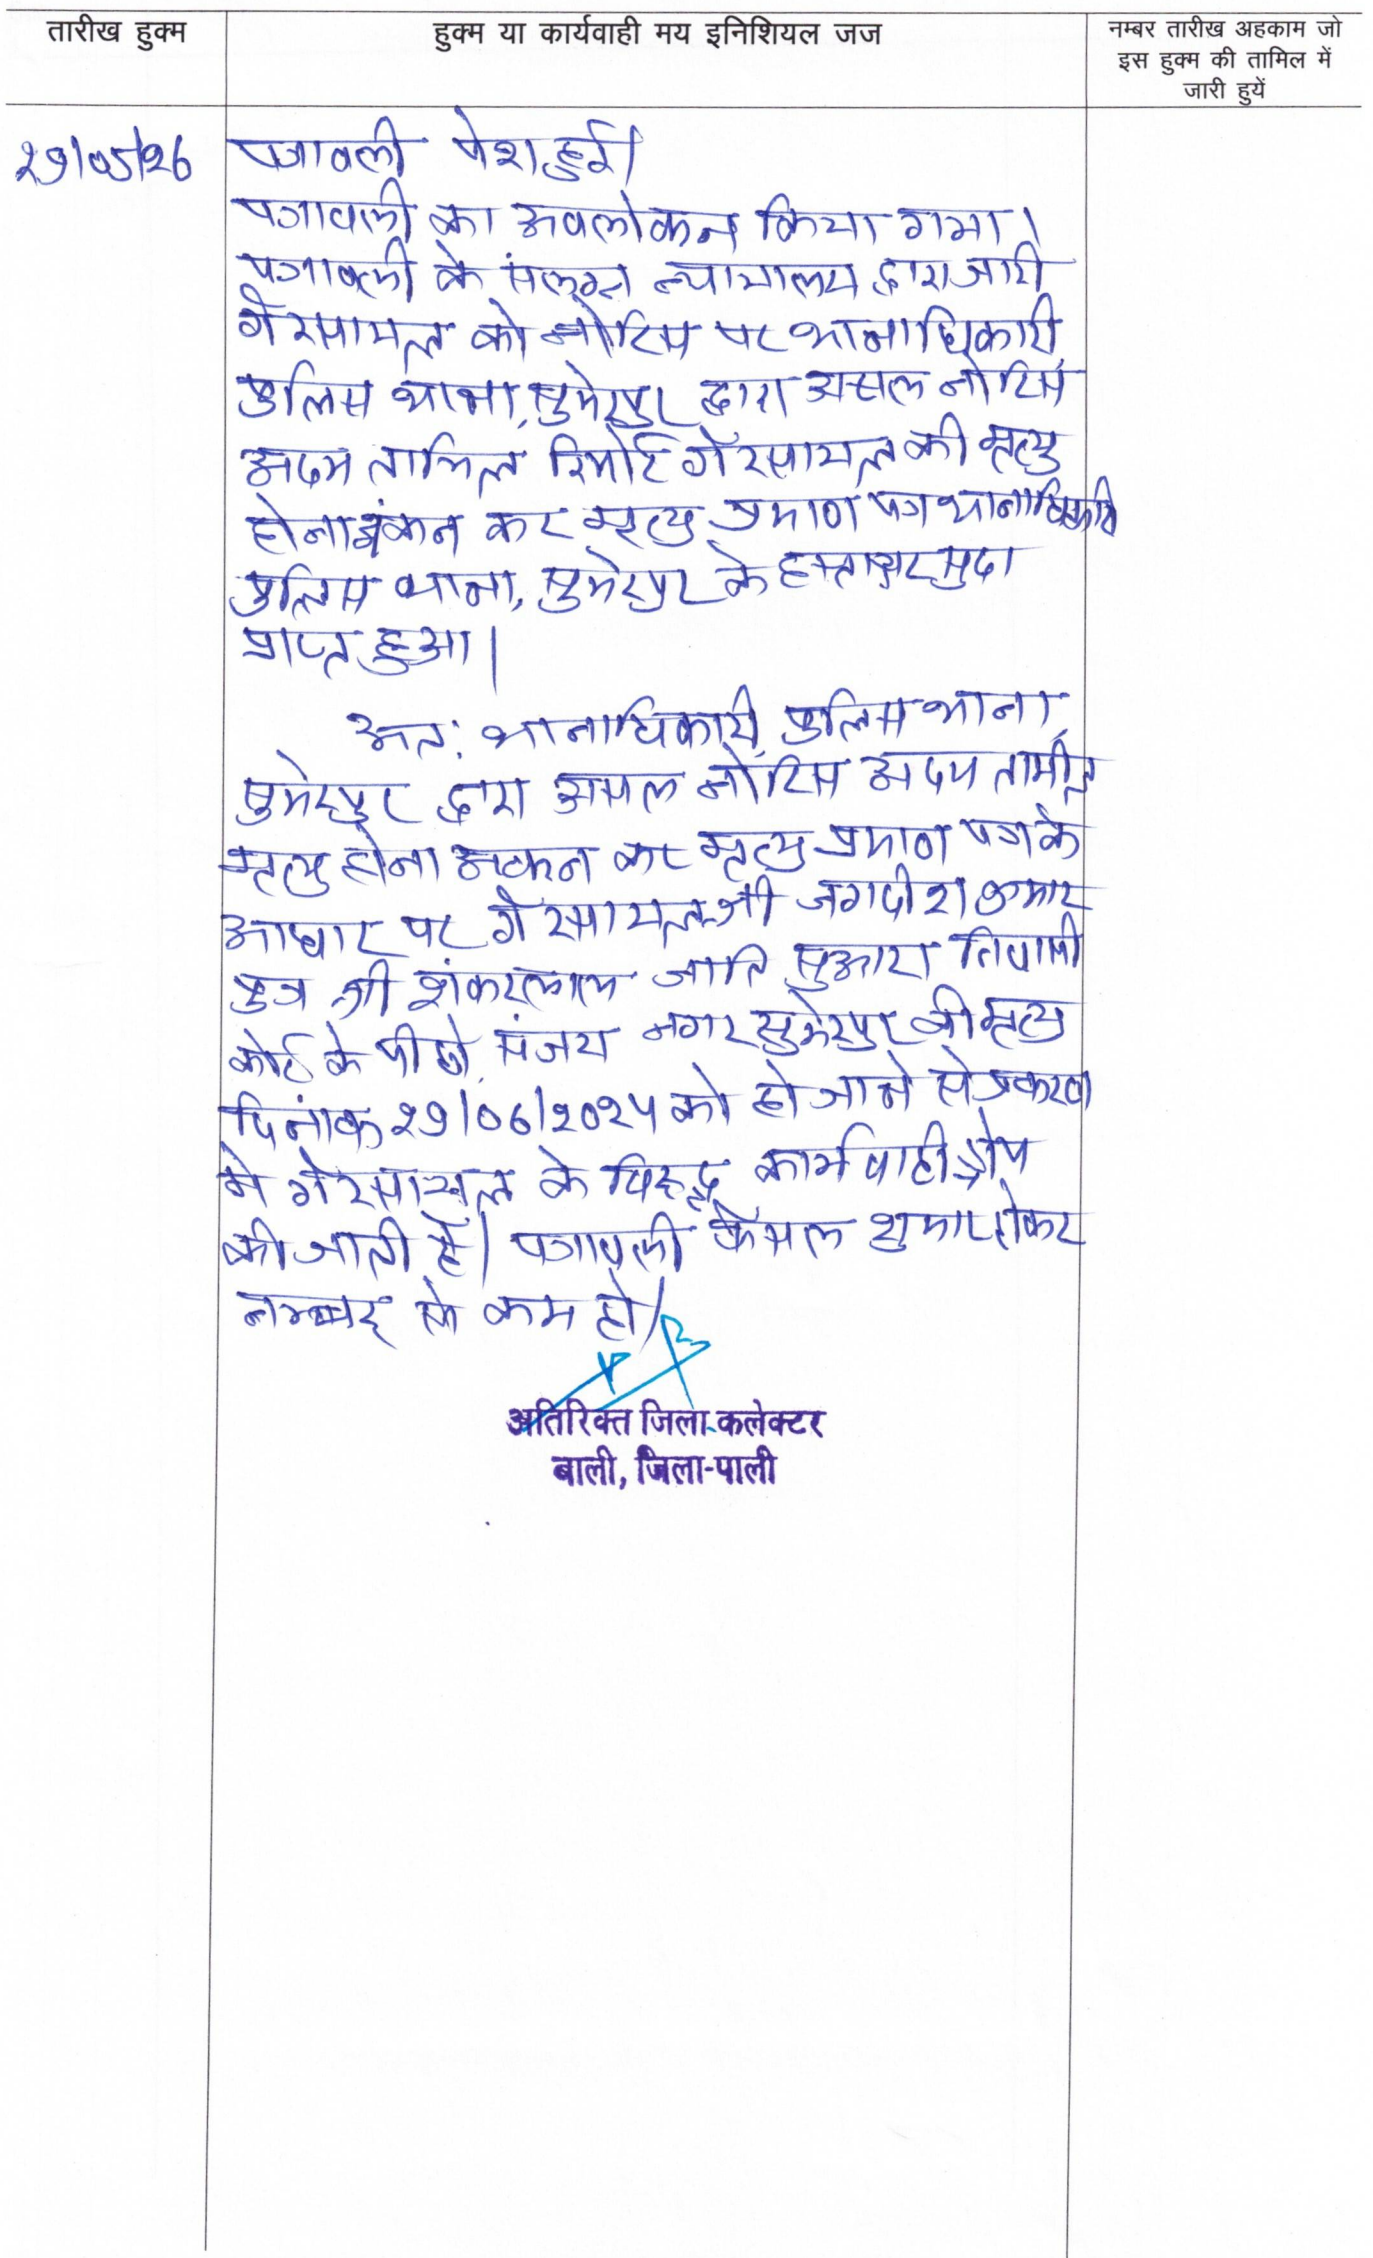 तारीख हुक्म
हुक्म या कार्यवाही मय इनिशियल जज
नम्बर तारीख अहकाम जो
इस हुक्म की तामिल में
जारी हुयें
29/05/26
पत्रावली पेश हुई।
पत्रावली का अवलोकन किया गया।
पत्रावली के संलग्न न्यायालय द्वारा जारी
गेरसायल को नोटिस पर थानाधिकारी,
पुलिस थाना, सुमेरपुर द्वारा असल नोटिस
अदम तामिल रिपोर्ट गेरसायल की मृत्यु
होना अंकन कर मृत्यु प्रमाण पत्र थानाधिकारी
पुलिस थाना, सुमेरपुर के हस्ताक्षर सुदा
प्राप्त हुआ।
अतः थानाधिकारी, पुलिस थाना,
सुमेरपुर द्वारा असल नोटिस अदम तामील
मृत्यु होना अंकन कर मृत्यु प्रमाण पत्र के
आधार पर गेरसायल श्री जगदीश कुमार
पुत्र श्री शंकरलाल जाति सुआरा निवासी
कोर्ट के पीछे, संजय नगर सुमेरपुर की मृत्यु
दिनांक 29/06/2025 को हो जाने से प्रकरण
मे गेरसायल के विरूद्ध कार्यवाही ड्रोप
की जाती है। पत्रावली फैसल शुमार होकर
नम्बर से कम हो।
अतिरिक्त जिला कलेक्टर
बाली, जिला-पाली